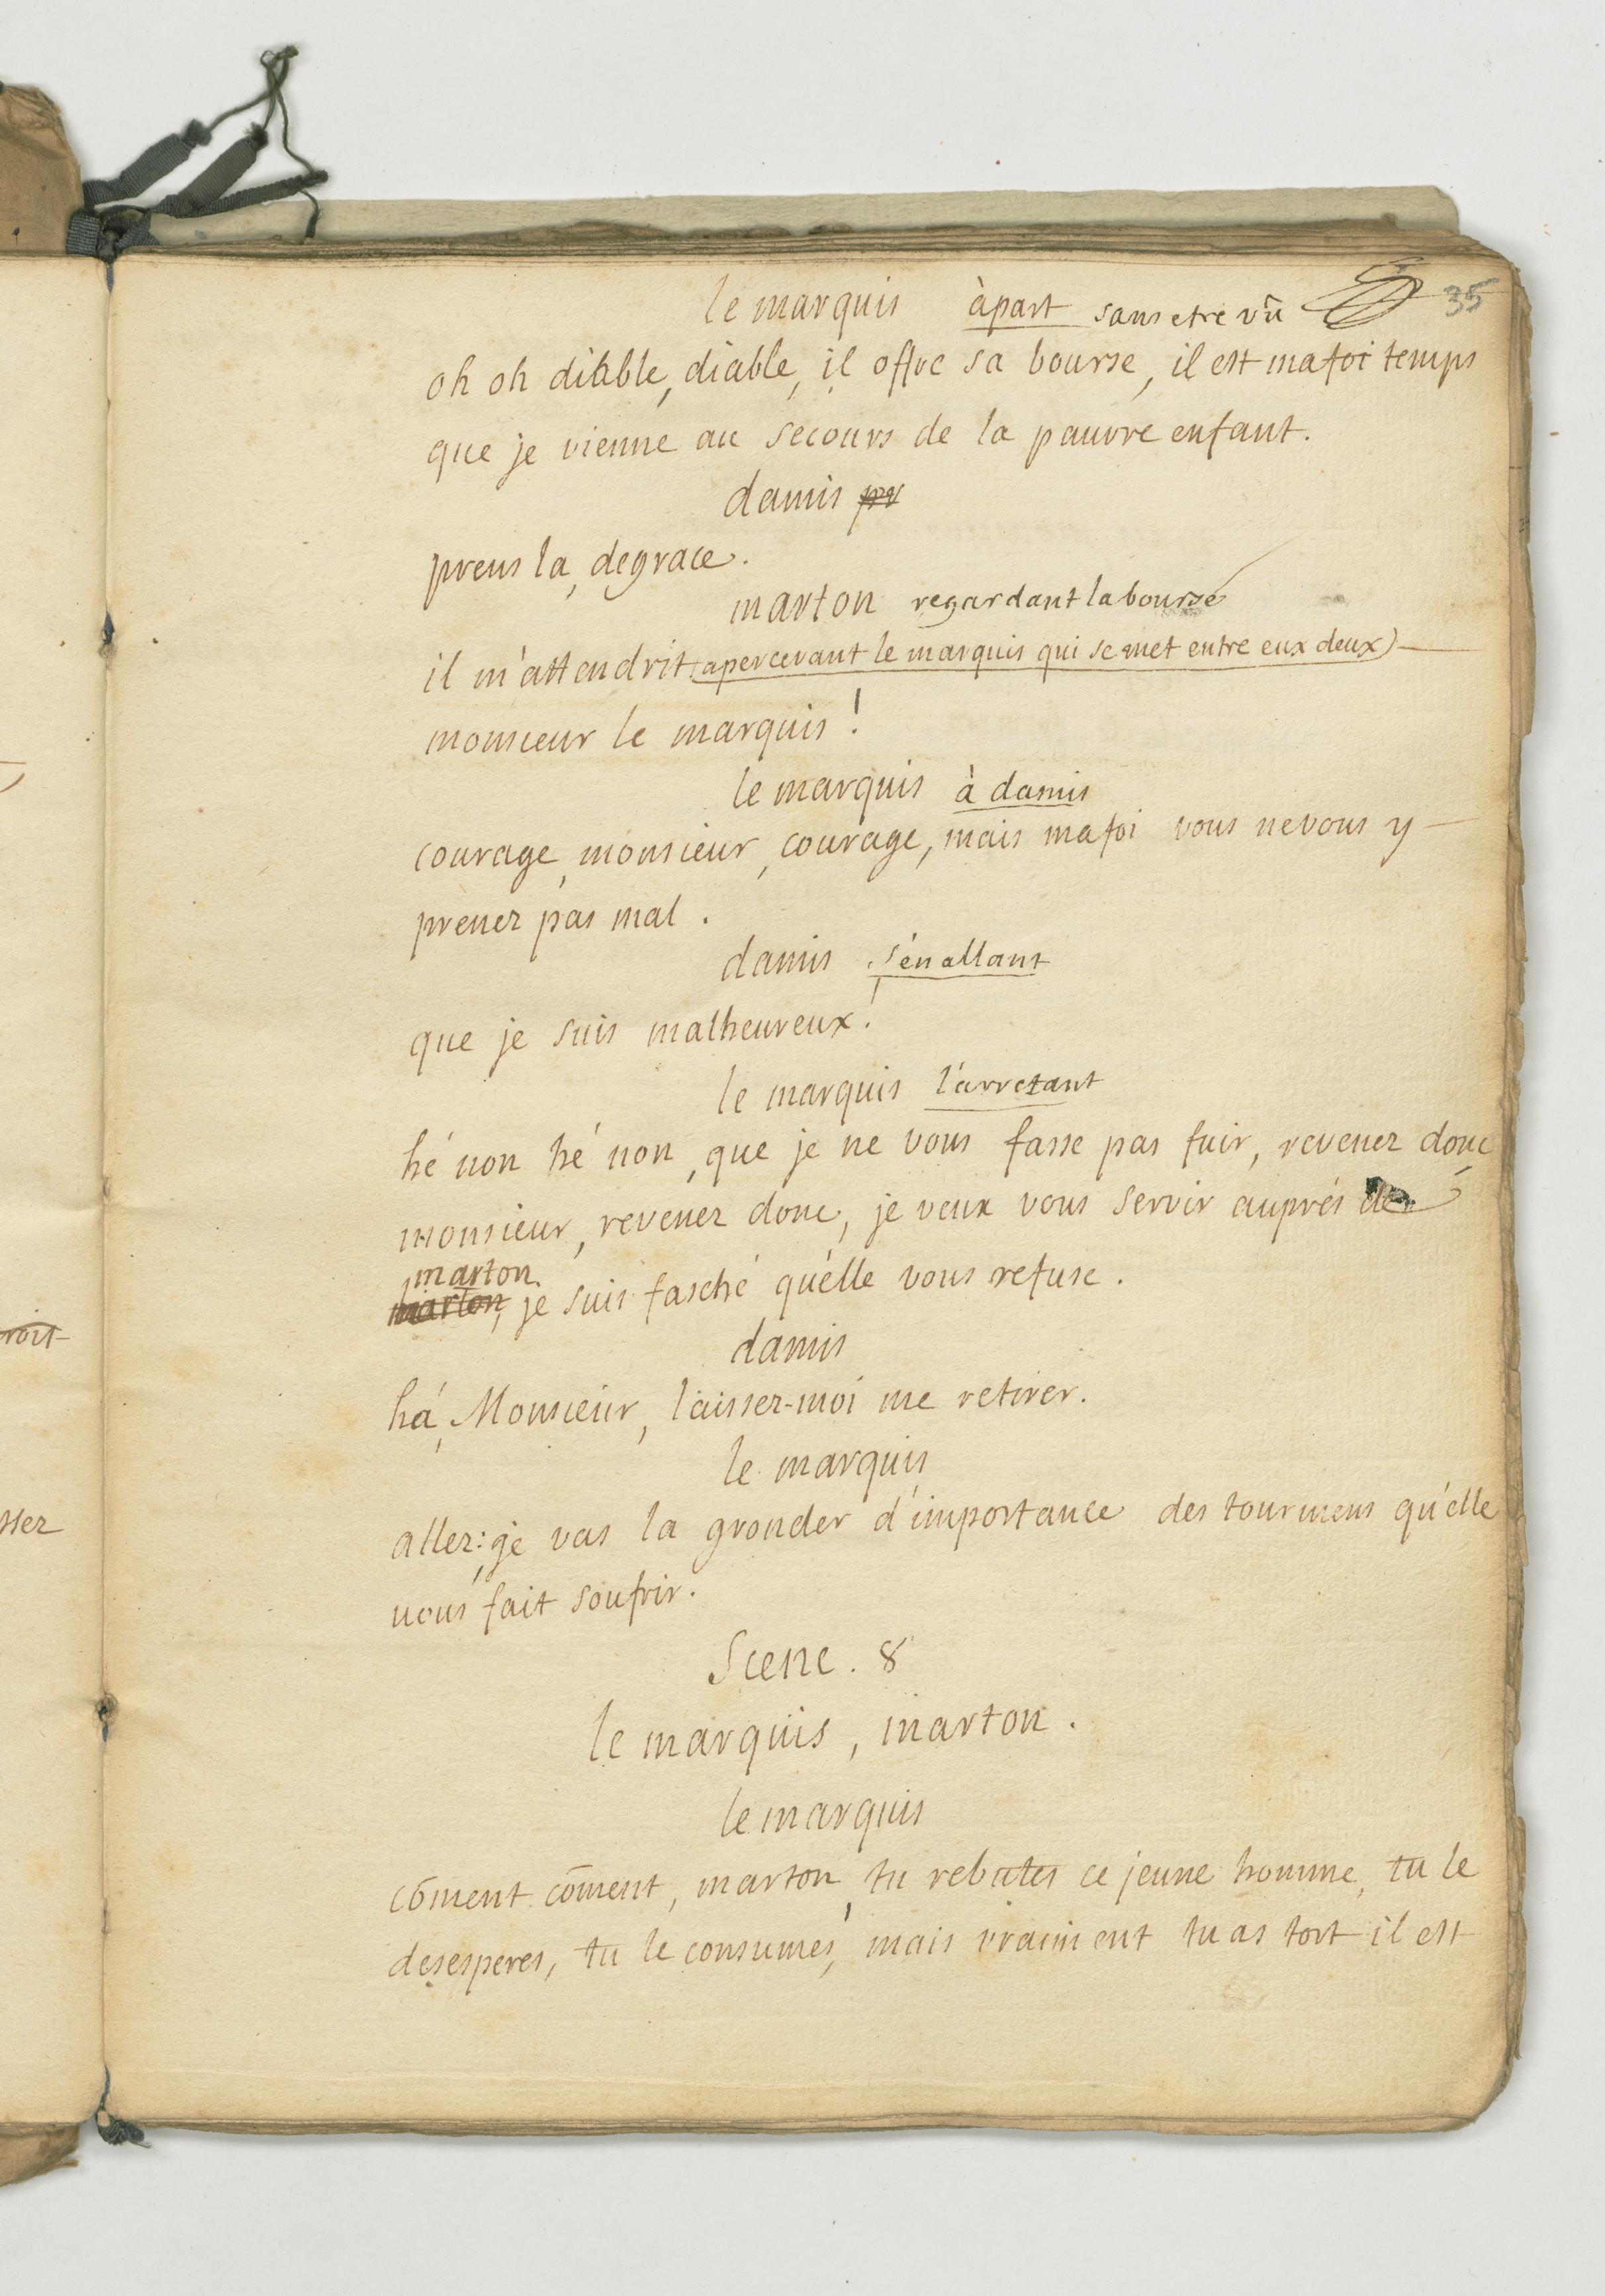 le marquis àpart sans etre vû 35
oh oh diable, diable, il offre sa bourse, il est mafoi temps
que je vienne au secours de la pauvre enfant.
damis pr
prens la, degrace.
marton regardant la bourse
il m'attendrit (apercevant le marquis qui se met entre eux deux)
monsieur le marquis!
le marquis à damis
courage, monsieur, courage, mais mafoi vous nevous y
prenez pas mal.
damis s'en allant
que je suis malheureux!
le marquis l'arretant
hé non hé non, que je ne vous fasse pas fuir, revenez donc
monsieur, revenez donc, je veux vous servir auprés de
marton
marton, je suis fasché qu'elle vous refuse.
damis
há, Monsieur, laissez-moi me retirer.
le marquis
allez: je vas la gronder d'importance des tourmens qu'elle
vous fait soufrir.
Scene. 8
le marquis, marton.
le marquis
cōment cōment, marton, tu rebutes ce jeune homme, tu le
desesperes, tu le consumes, mais vraiment tu as tort il est
roit
ssez